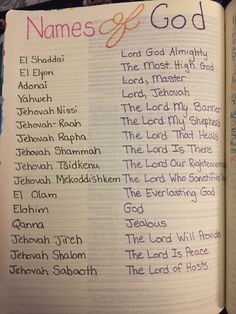 Names of God
El Shaddai Lord God Almighty
El Elyon The Most High God
Adonai Lord, Master
Yahweh Lord, Jehovah
Jehovah Nissi The Lord My Banner
Jehovah-Raah The Lord My Shepherd
Jehovah Rapha The Lord That Heals
Jehovah Shammah The Lord Is There
Jehovah Tsidkenu The Lord Our Righteousness
Jehovah Mekoddishkem The Lord Who Sanctifies
El Olam The Everlasting God
Elohim God
Qanna Jealous
Jehovah Jireh The Lord Will Provide
Jehovah Shalom The Lord Is Peace
Jehovah Sabaoth The Lord of Hosts